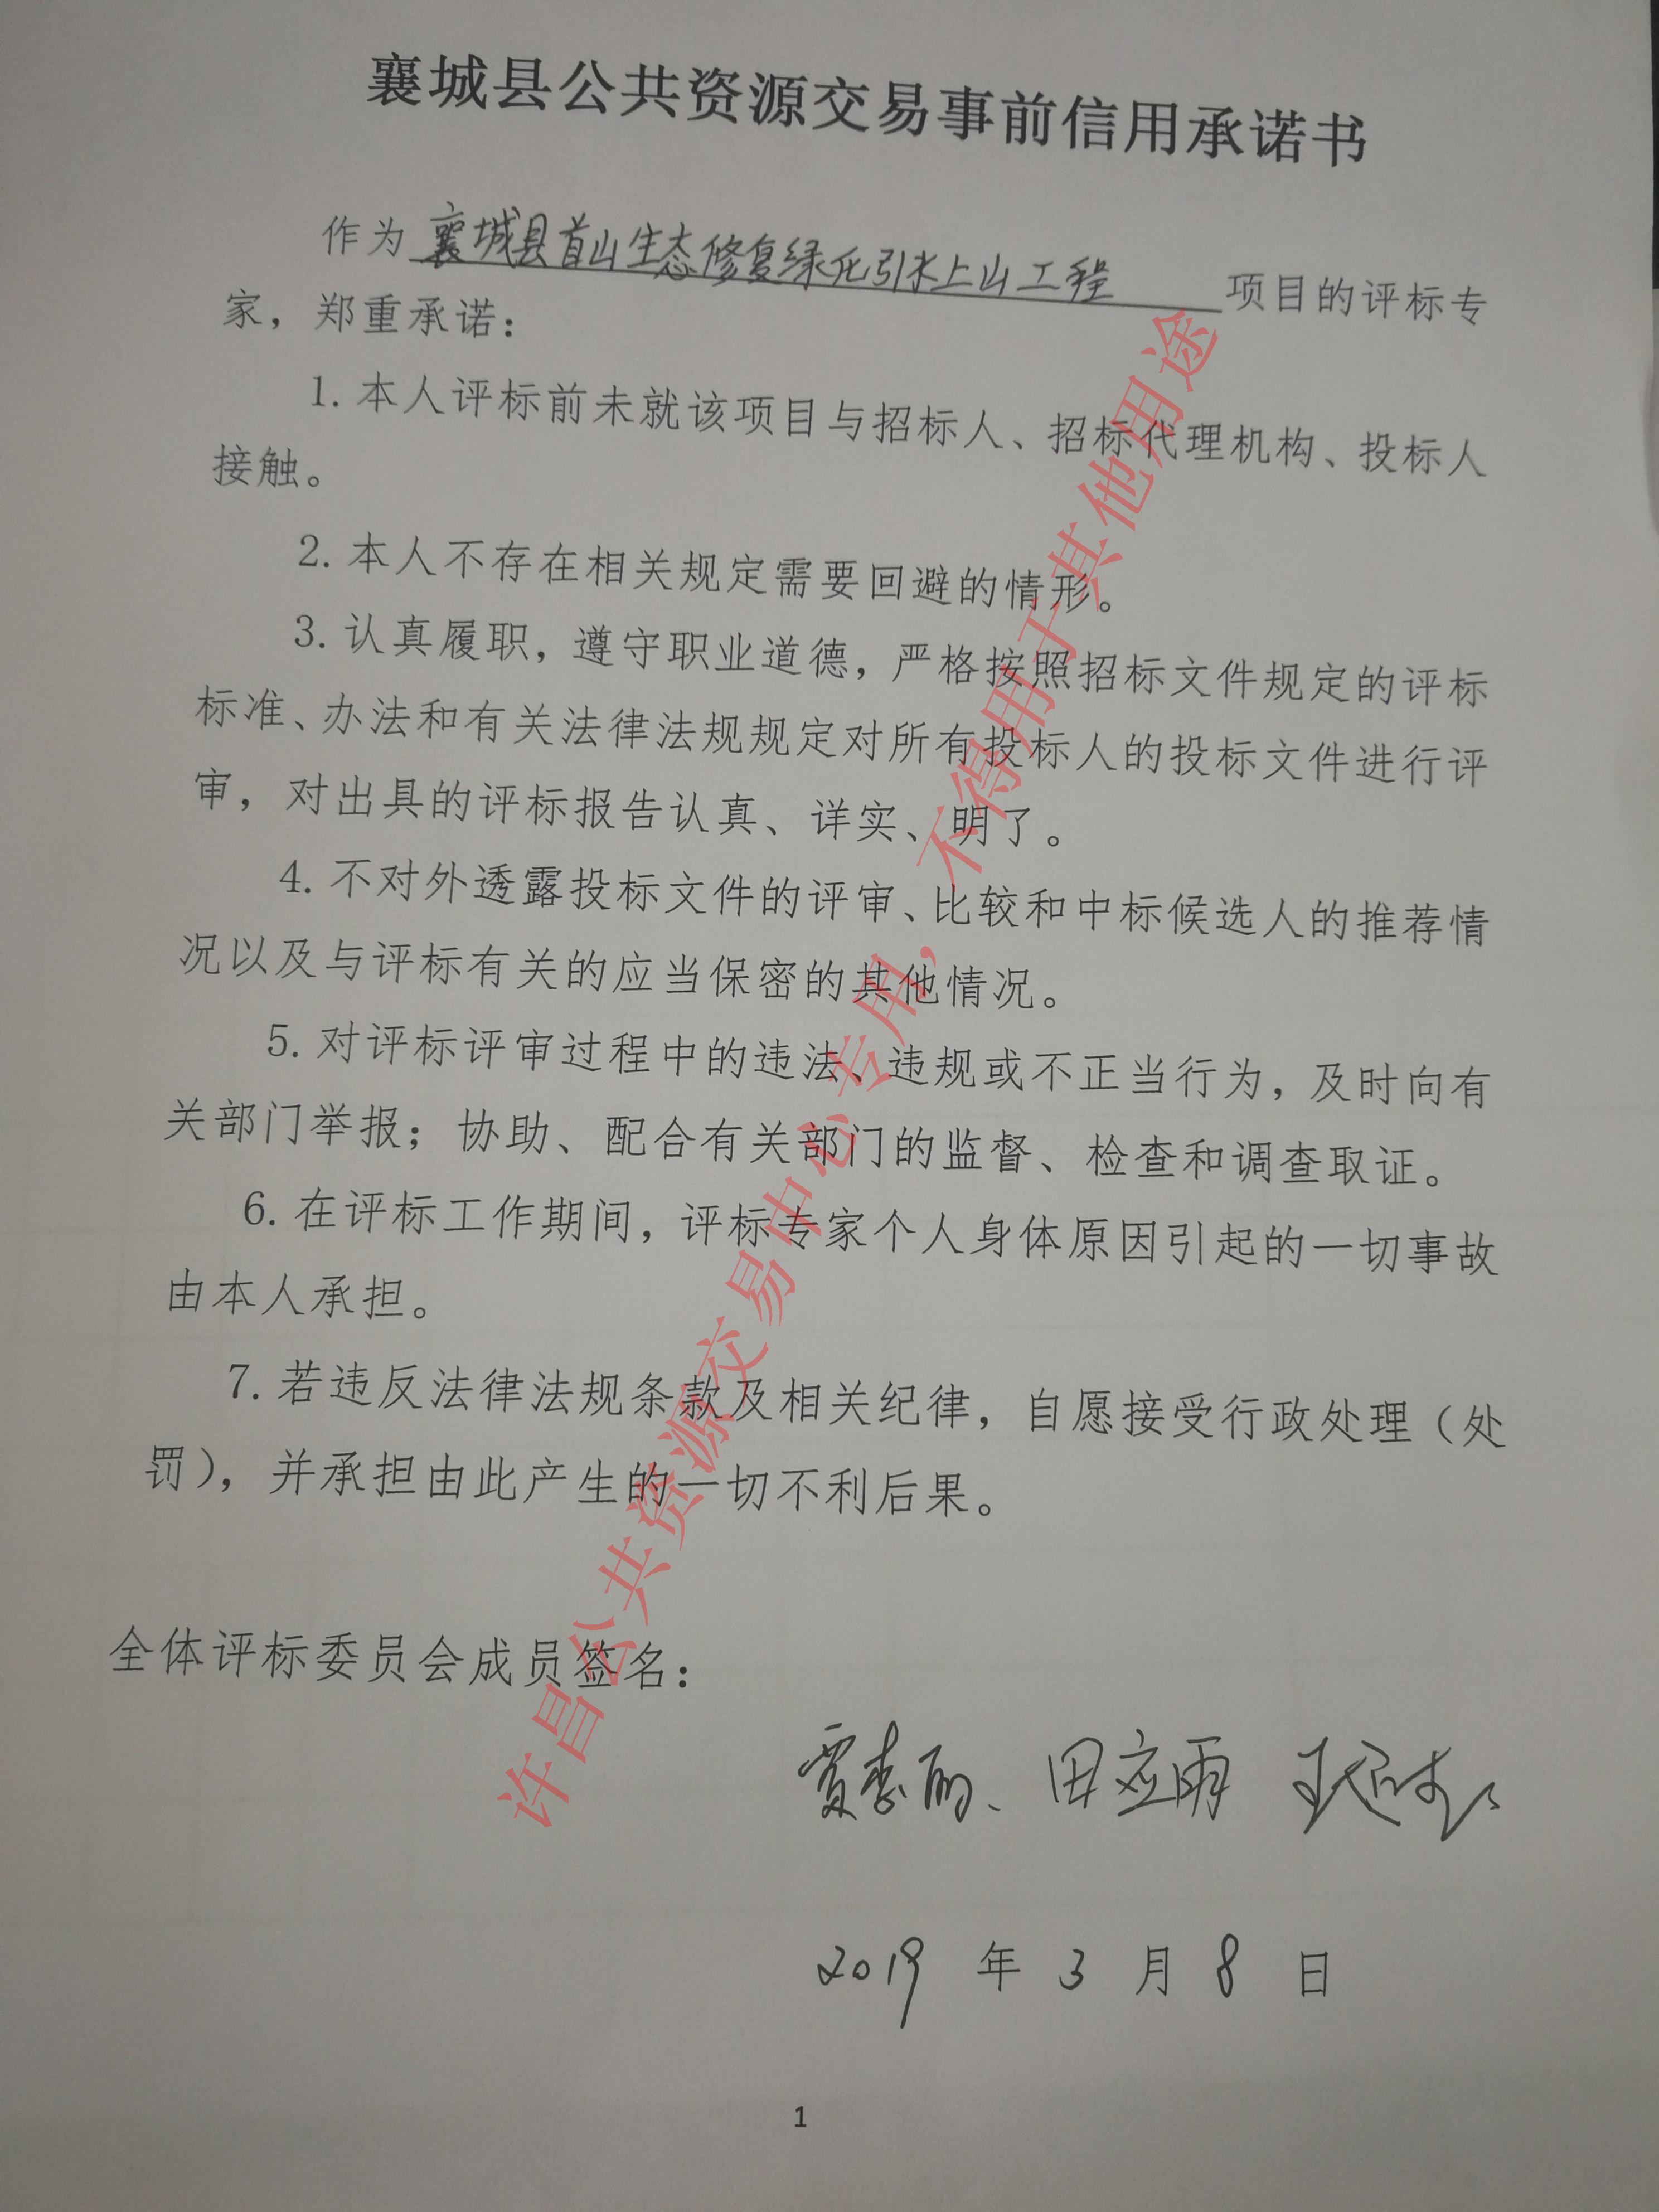 襄城县公共资源交易事前信用承诺书
作为襄城县首山生态修复绿化引水上山工程项目的评标专
家，郑重承诺：
1. 本人评标前未就该项目与招标人、招标代理机构、投标人
接触。
2. 本人不存在相关规定需要回避的情形。
3. 认真履职，遵守职业道德，严格按照招标文件规定的评标
标准、办法和有关法律法规规定对所有投标人的投标文件进行评
审，对出具的评标报告认真、详实、明了。
4. 不对外透露投标文件的评审、比较和中标候选人的推荐情
况以及与评标有关的应当保密的其他情况。
5. 对评标评审过程中的违法、违规或不正当行为，及时向有
关部门举报；协助、配合有关部门的监督、检查和调查取证。
6. 在评标工作期间，评标专家个人身体原因引起的一切事故
由本人承担。
7. 若违反法律法规条款及相关纪律，自愿接受行政处理（处
罚），并承担由此产生的一切不利后果。
全体评标委员会成员签名：
田应雨
2019 年 3 月 8 日
1
许昌公共资源交易中心专用，不得用于其他用途